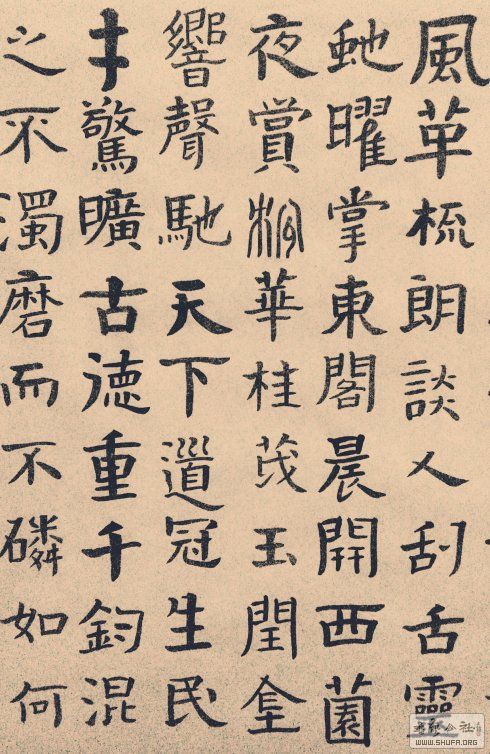 風草梳朗談人刮舌靈
虵曜掌東閣晨開西園
夜賞桐華桂茂玉閏金
響聲馳天下道冠生民
才驚曠古德重千鈞混
之不濁磨而不磷如何
WWW.SHUFA.ORG